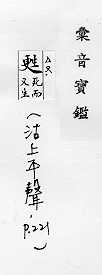 彙音寶鑑
ㄙㄡˊ
甦 死而又生
(沽上平聲, p.221)